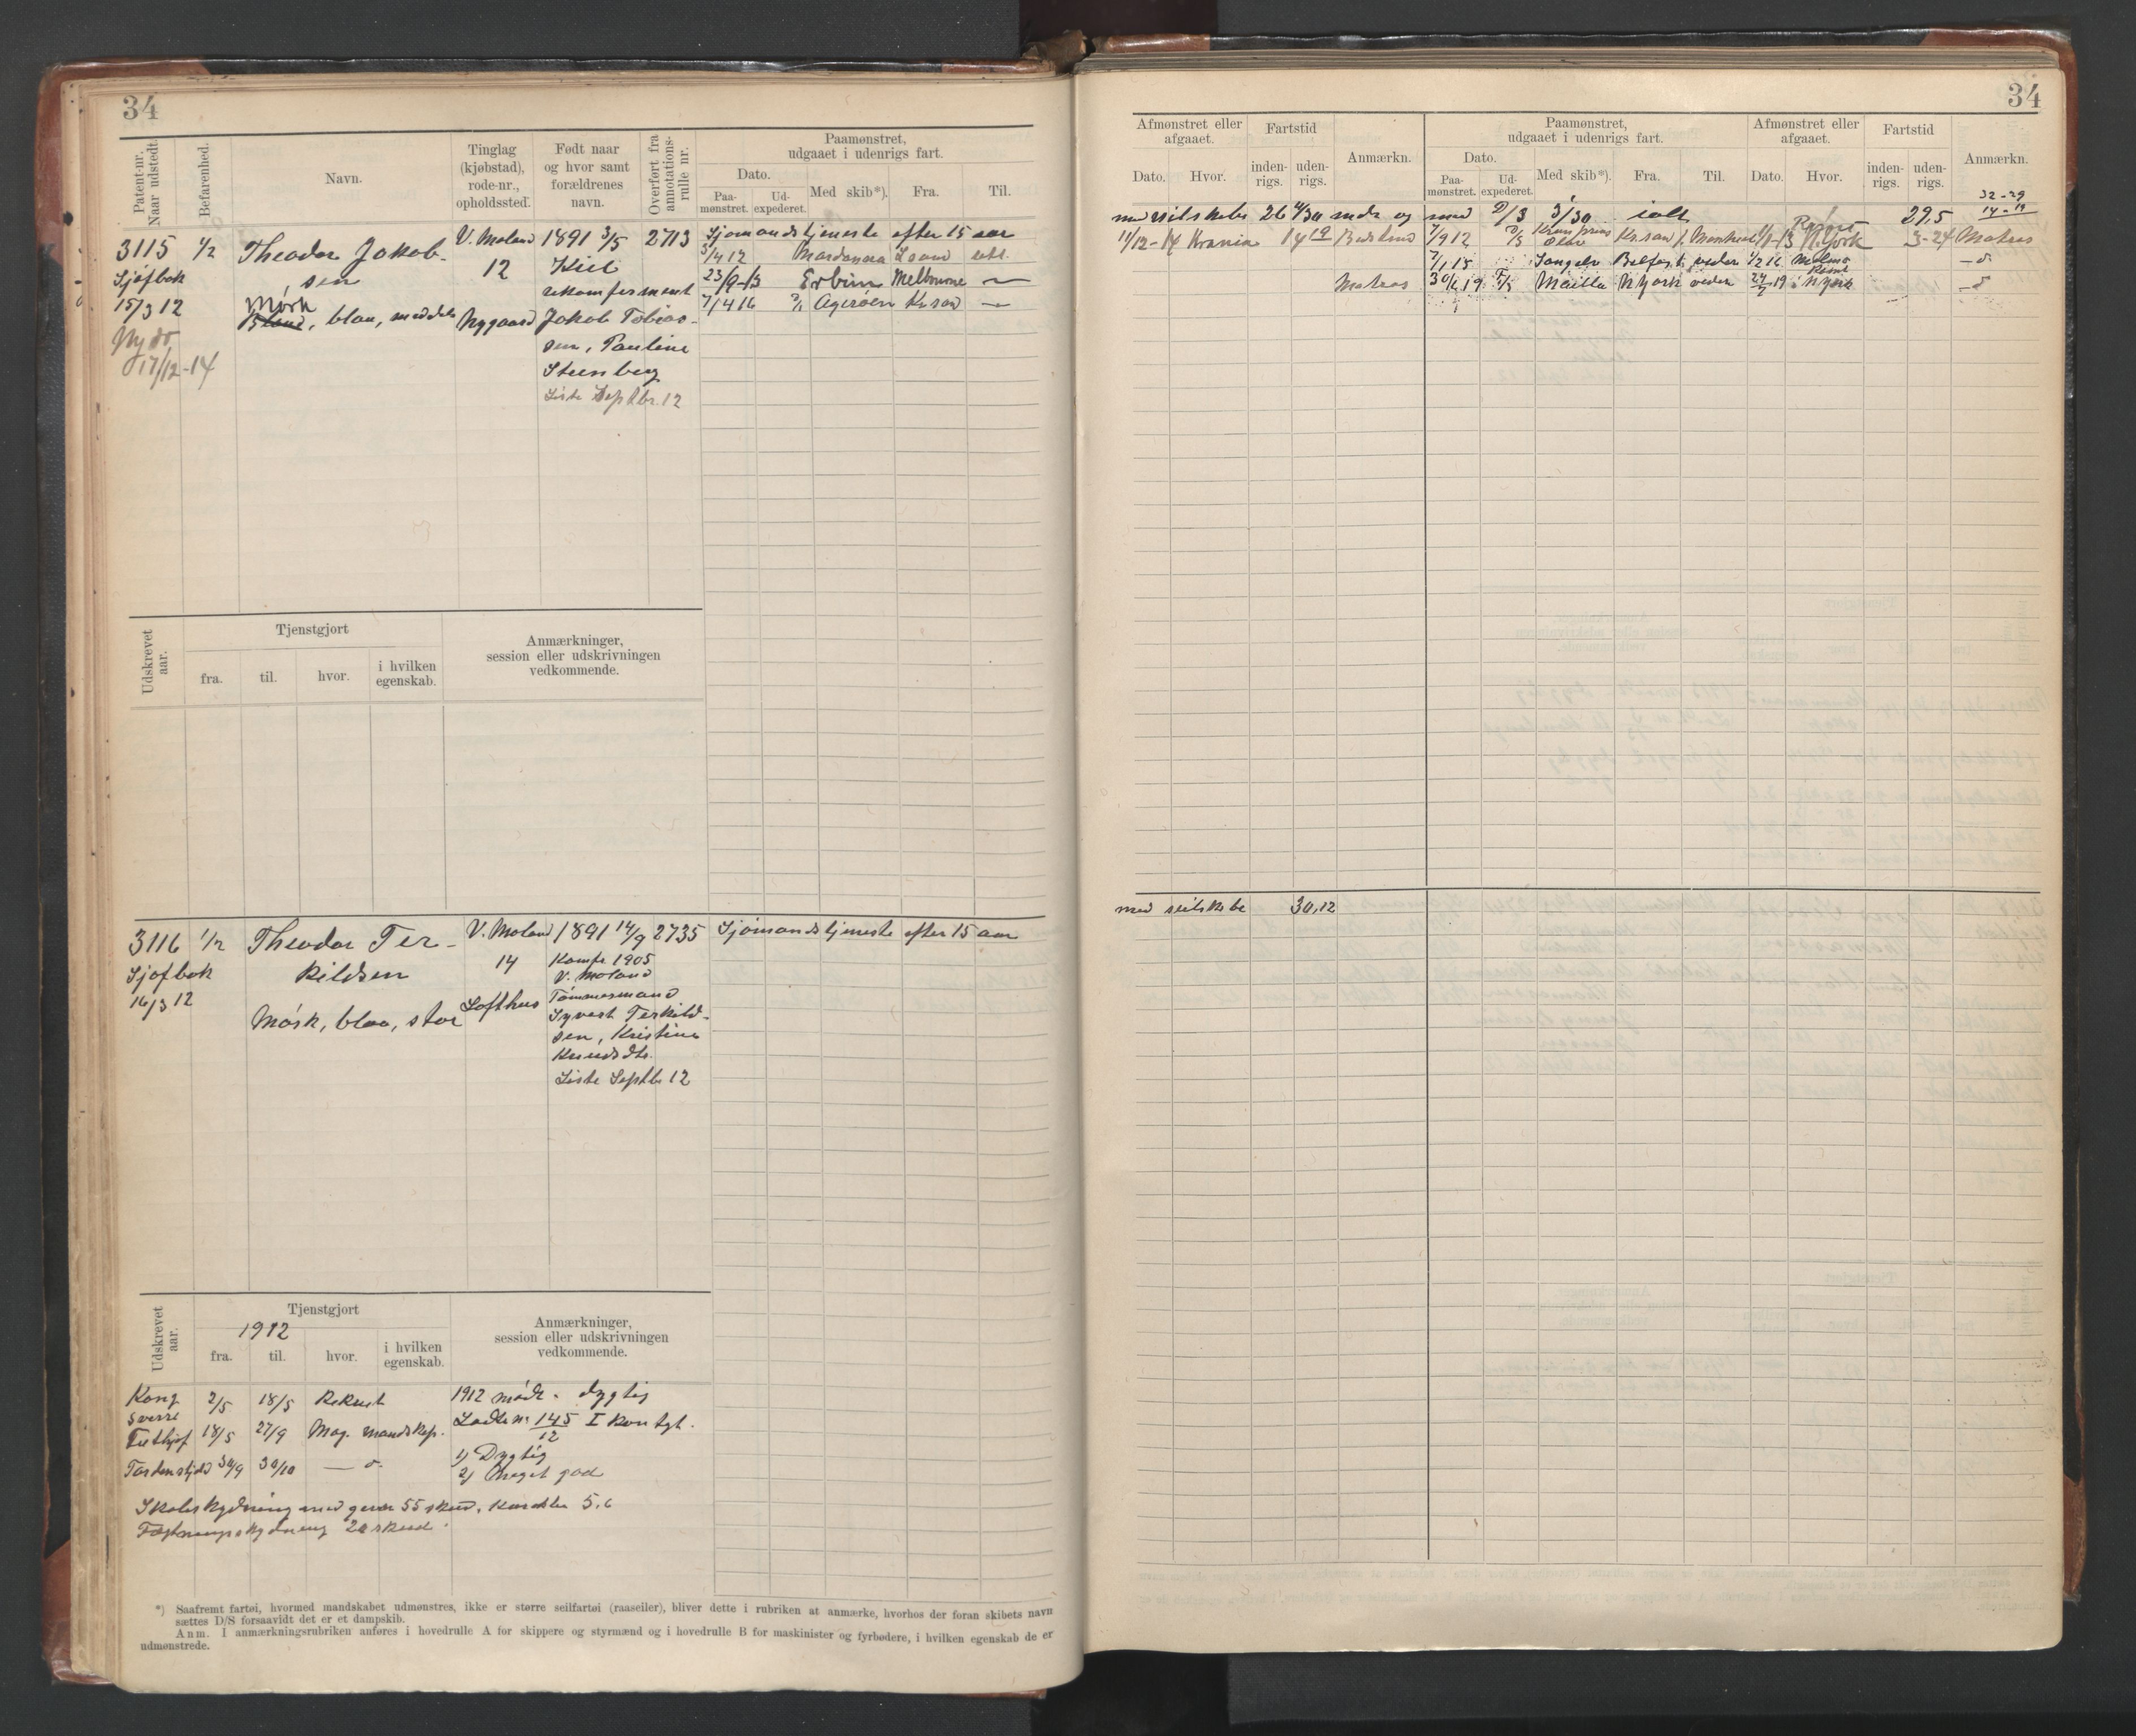 34
Patent-nr. Naar udstedt.
Befarenhed.
Navn.
Tinglag (kjøbstad), rode-nr., opholdssted.
Født naar og hvor samt forældrenes navn.
Overført fra annotations-rulle nr.
Paamønstret, udgaaet i udenrigs fart.
Dato.
Paa-mønstret.
Ud-expederet.
Med skib*).
Fra.
Til.
3115 1/2 Theodor Jakob- V. Moland 1891 3/5 2713 Sjømandstjeneste efter 15 aar
Sjøfbok sen 12 Kiel
15/3 12 Mørk
Bland, blaa, middels Nygaard Jakob Tobias-
sen, Pauline
Steenberg
17/12-14
Liste Septbr. 12
5/4 12
23/9-13 Melbourne
7/4 16 Agerøen Kr.sand
Udskrevet aar.
Tjenstgjort
fra.
til.
hvor.
i hvilken egenskab.
Anmærkninger, session eller udskrivningen vedkommende.
3116 1/2 Theodor Ter- V. Moland 1891 14/9 2735 Sjømandstjeneste efter 15 aar
Sjøfbok kildsen 14 Konfr. 1905
16/3 12 V. Moland
Mørk, blaa, stor Lofthus Tømmermand
Syvert Terkild-
sen, Kristine
Knudsdtr.
Liste Septbr 12
Udskrevet aar.
Tjenstgjort
1912
fra.
til.
hvor.
i hvilken egenskab.
Anmærkninger, session eller udskrivningen vedkommende.
Kong Sverre 2/5 18/5 Rekrut 1912 mødt. dygtig
18/5 27/9 Mag. mandskap. 145/12 I
Tordenskjold 30/9 30/10 1) Dygtig
2) Meget god
Skoleskydning med gevær 55 skud, 5.6
20 skud.
*) Saafremt fartøi, hvormed mandskabet udmønstres, ikke er større seilfartøi (raaseiler), bliver dette i rubriken at anmærke, hvorhos der foran skibets navn
sættes D/S forsaavidt det er et dampskib.
Anm. I anmærkningsrubriken anføres i hovedrulle A for skippere og styrmænd og i hovedrulle B for maskinister og fyrbødere, i hvilken egenskab de er
udmønstrede.
34
Afmønstret eller afgaaet.
Dato.
Hvor.
Fartstid
inden-rigs.
uden-rigs.
Anmærkn.
Paamønstret, udgaaet i udenrigs fart.
Dato.
Paa-mønstret.
Ud-expederet.
Med skib*).
Fra.
Til.
Afmønstret eller afgaaet.
Dato.
Hvor.
Fartstid
inden-rigs.
uden-rigs.
Anmærkn.
32-29
14-19
med seilskibe 26 4/30 mdr og med D/S 3/30 ialt 29,5
11/12-14 14 19 7/9 12 D/S Kr.sand N.York 3-24 Matros
7/1 15 Belfast 1/2 16 Malmø
Matros 30/4 19 D/S N York N York
med seilskibe 30,12